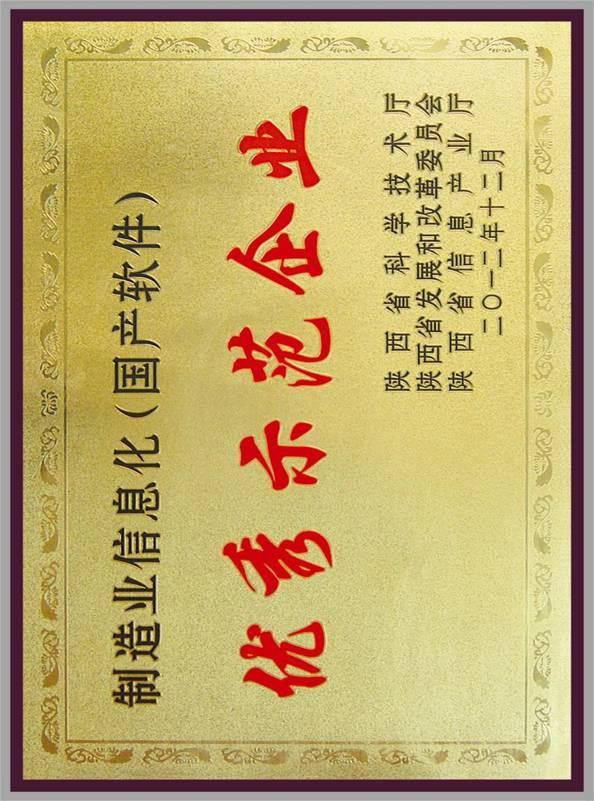 制造业信息化(国产软件)
优秀示范企业
陕西省科学技术厅
陕西省发展和改革委员会
陕西省信息产业厅
二〇一二年十二月